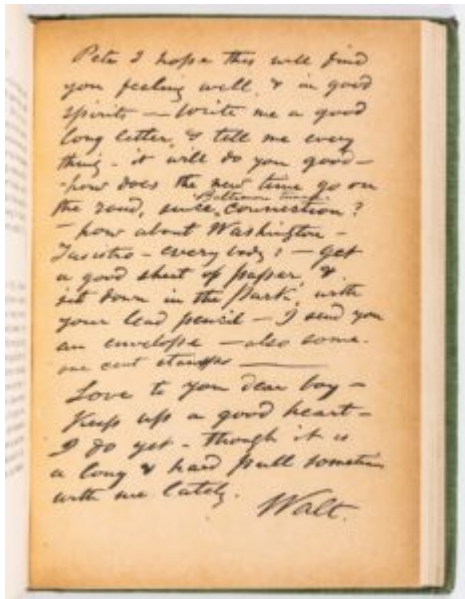 Pete I hope this will find
you feeling well, & in good
spirits — Write me a good
long letter, & tell me every
thing - it will do you good —
how does the new time go on
the road, since Baltimore tunnel connection?
— how about Washington —
Tasistro - every body? — get
a good sheet of paper, &
sit down in the Park, with
your lead pencil — I send you
an envelope — also some
one cent stamps
Love to you dear boy —
Keep up a good heart —
I do yet - though it is
a long & hard pull sometimes
with me lately.
Walt.